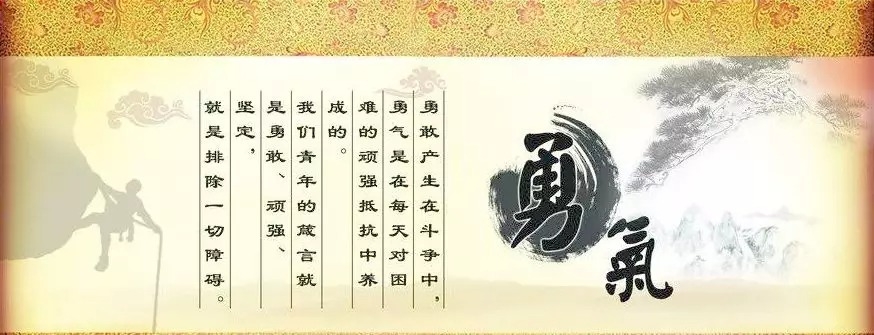 勇氣
勇敢产生在斗争中,
勇气是在每天对困
难的顽强抵抗中养
成的。
我们青年的箴言就
是勇敢、顽强、
坚定,
就是排除一切障碍。